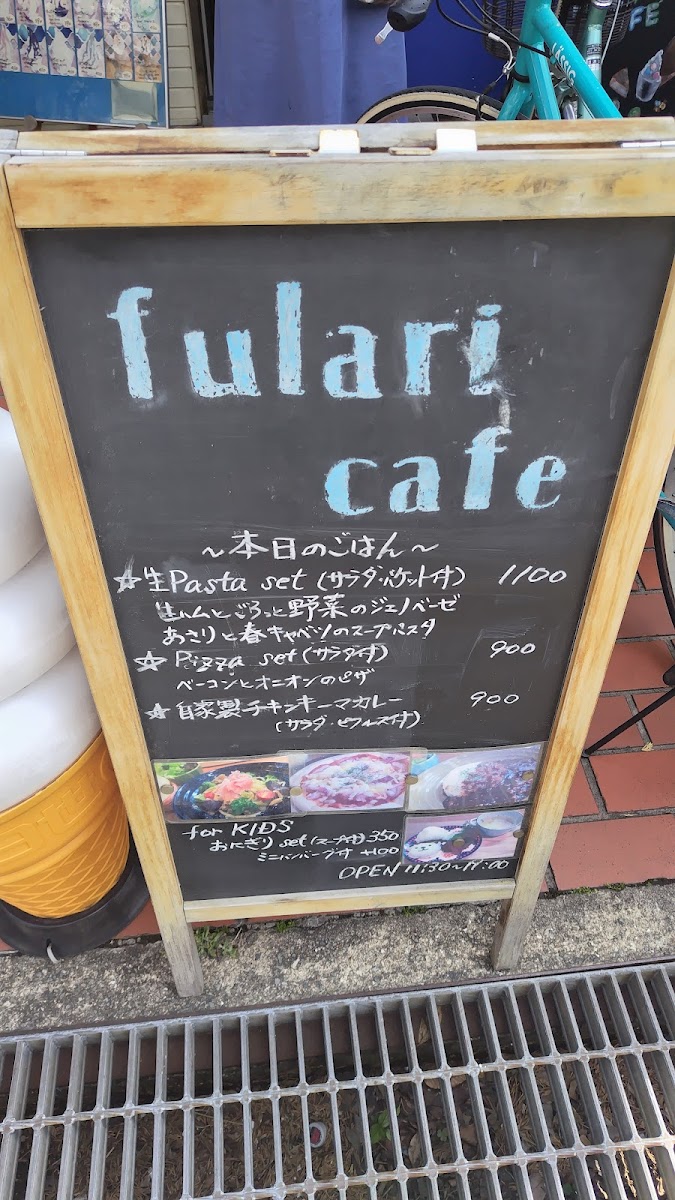 fulari
cafe
~本日のごはん~
☆生Pasta set (サラダ・バケット付) 1100
生ハムとごろっと野菜のジェノベーゼ
あさりと春キャベツのスープパスタ
☆ Pizza set (サラダ付) 900
ベーコンとオニオンのピザ
☆ 自家製チキンキーマカレー 900
(サラダ・ピクルス付)
for KIDS
おにぎり set (スープ付) 350
ミニハンバーグ付 +100
OPEN 11:30~17:00